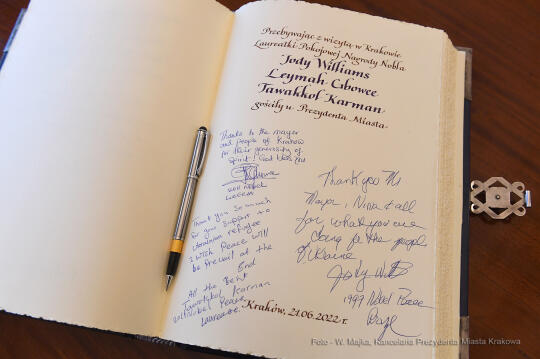 Przebywając z wizytą w Krakowie
Laureatki Pokojowej Nagrody Nobla
Jody Williams
Leymah Gbowee
Tawakkol Karman
gościły u Prezydenta Miasta
Thanks to the mayor
and people of Krakow
for their generosity of
Spirit! God bless you
2011 Nobel
Thank you so much
for your support to
Ukrainian refugee
I wish Peace will
be prevail at the
End
All the Best
Tawakkol Karman
Peace
Laureate
Thank you Mr
Mayor, Nina & all
for what you are
doing for the people
of Ukraine
Jody
1997 Nobel Peace
Kraków, 21.06.2022 r.
Foto - W. Majka, Kancelaria Prezydenta Miasta Krakowa